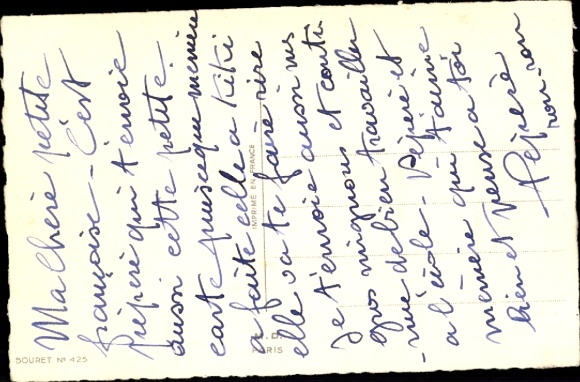 Ma chère petite
françoise - C'est
Pépère qui t'envoie
aussi cette petite
carte puisceque mémère
a faite celle a Kiki
elle va te faire rire
Je t'envoie aussi mes
gros mignons et conti-
-nue de bien travailler
a l'école - Pépère et
mémère qui t'aime
bien et pense a toi
Pépère ron
ron-ron
IMPRIMÉ EN FRANCE
M.D.
PARIS
SOURET Nº 425